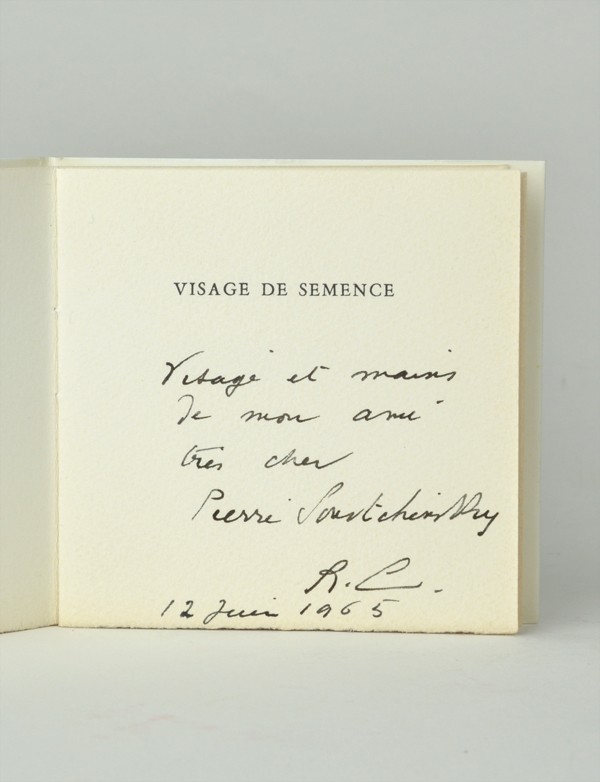 VISAGE DE SEMENCE
Visage et mains
de mon ami
très cher
Pierre Souvtchinsky
R. C.
12 Juin 1965